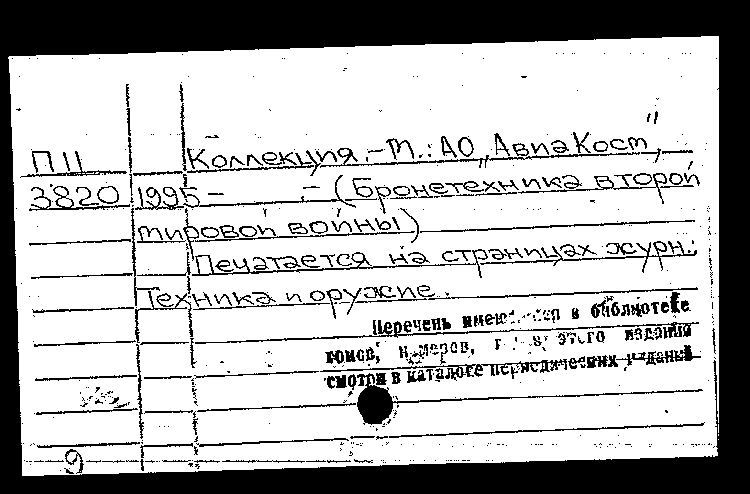 П 11 Коллекция. - М.: АО „АвиаКост",
3820 1995 - . - (Бронетехника второй
мировой войны)
Печатается на страницах журн.:
Техника и оружие.
Перечень в библиотеке
томов, номеров, этого издания
смотри в каталоге периодических изданий
9